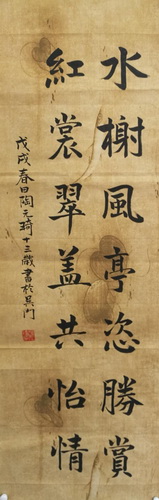 水榭風亭恣勝賞
紅裳翠蓋共怡情
戊戌春日陶元琦十三歲書於吳門